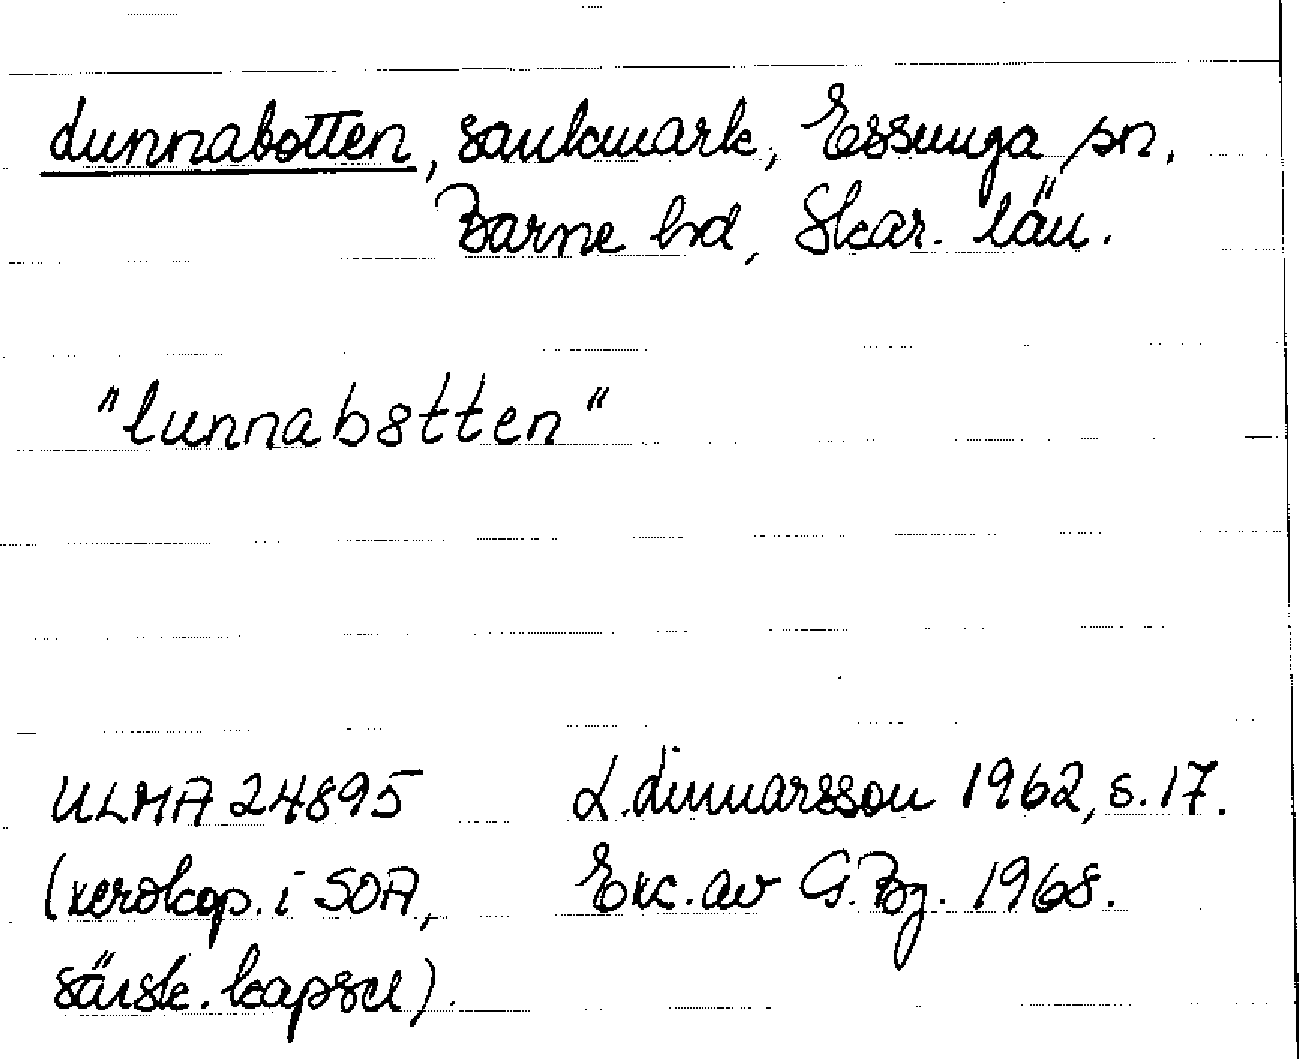 Lunnabotten, sankmark, Essunga sn,
Barne hd, Skar. län.
"lunnabotten"
ULMA 24895 L. Linnarsson 1962, s. 17.
(xerokop. i SOA, Exc. av G. Bg. 1968.
särsk. kapsel).